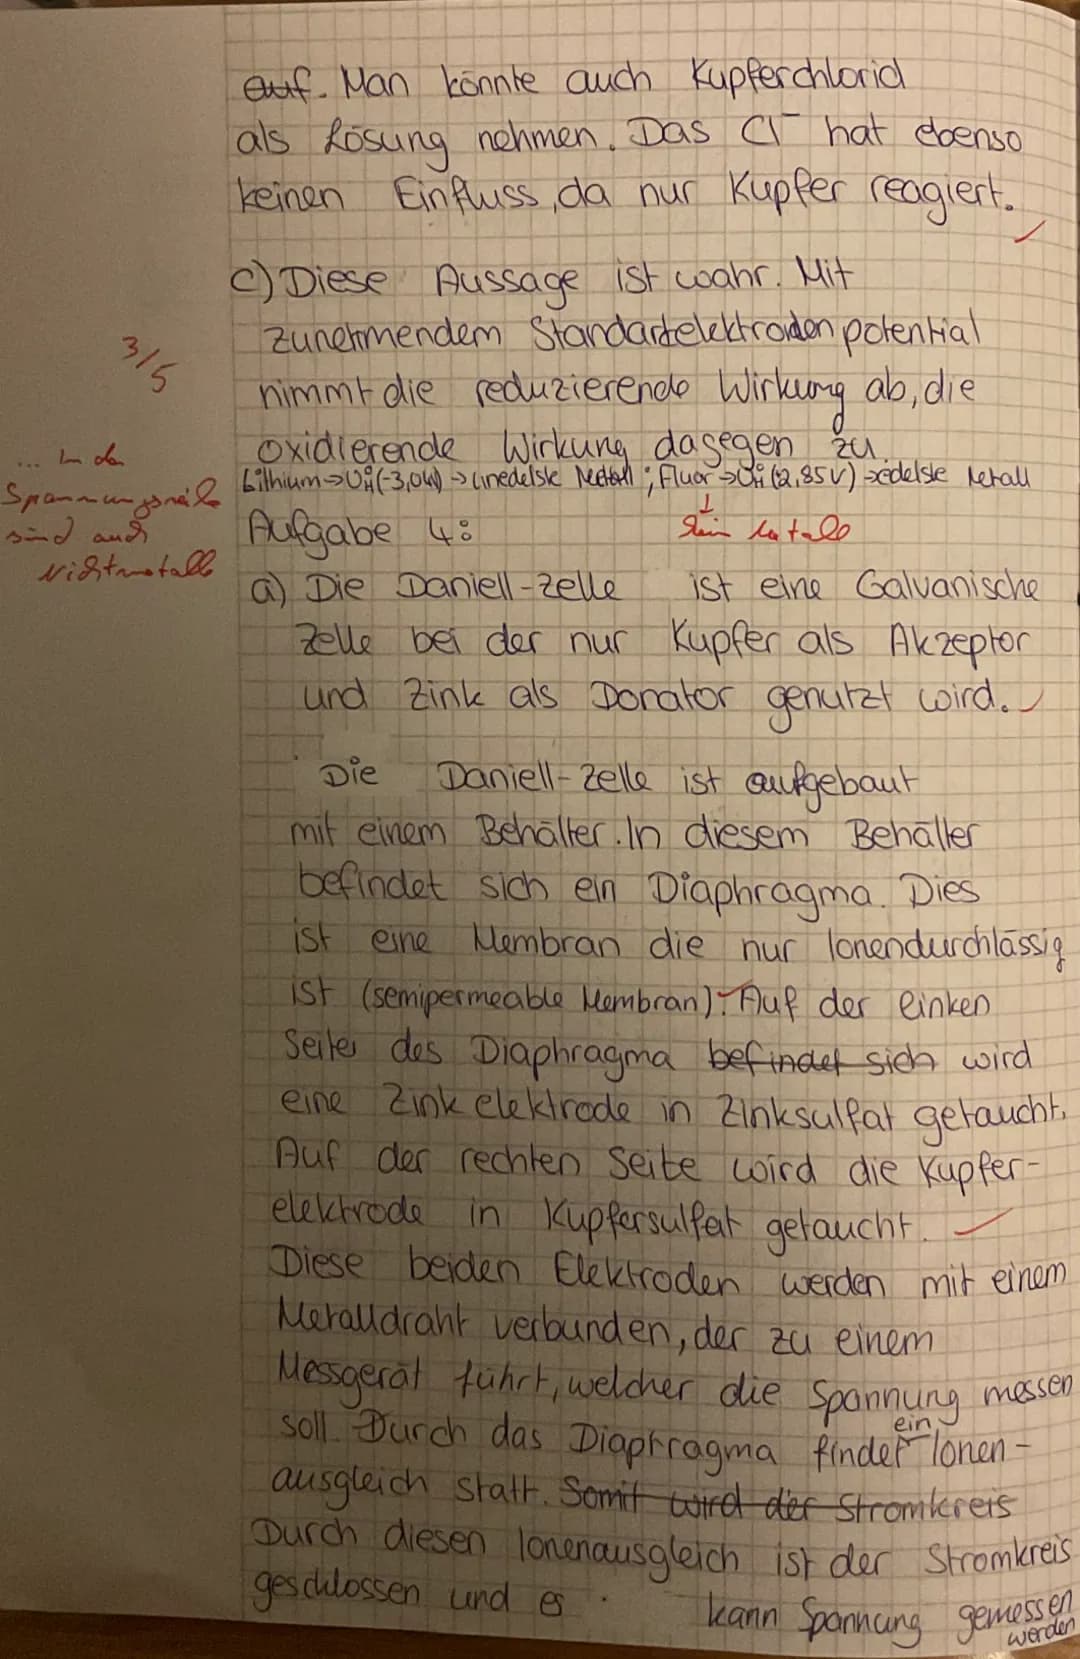 auf. Man könnte auch Kupferchlorid
als Lösung nehmen. Das Cl⁻ hat ebenso
keinen Einfluss, da nur Kupfer reagiert.
c) Diese Aussage ist wahr. Mit
zunehmendem Standartelektroden potential
3/5
nimmt die reduzierende Wirkung ab, die
oxidierende Wirkung dagegen zu.
... In der
Spannungsreihe
sind auch
Nichtmetalle
Lithium → U°H (-3,04V) → unedelste Metall ; Fluor → U°H (2,85V) → edelste Metall
kein Metall
Aufgabe 4:
a) Die Daniell-Zelle ist eine Galvanische
Zelle bei der nur Kupfer als Akzeptor
und Zink als Donator genutzt wird.
Die Daniell-Zelle ist aufgebaut
mit einem Behälter. In diesem Behälter
befindet sich ein Diaphragma. Dies
ist eine Membran die nur Ionendurchlässig
ist (semipermeable Membran). Auf der linken
Seite des Diaphragma befindet sich wird
eine Zink elektrode in Zinksulfat getaucht.
Auf der rechten Seite wird die Kupfer-
elektrode in Kupfersulfat getaucht.
Diese beiden Elektroden werden mit einem
Metalldraht verbunden, der zu einem
Messgerät führt, welcher die Spannung messen
soll. Durch das Diaphragma findet ein Ionen-
ausgleich statt. Somit wird der Stromkreis
Durch diesen Ionenausgleich ist der Stromkreis
geschlossen und es kann Spannung gemessen
werden